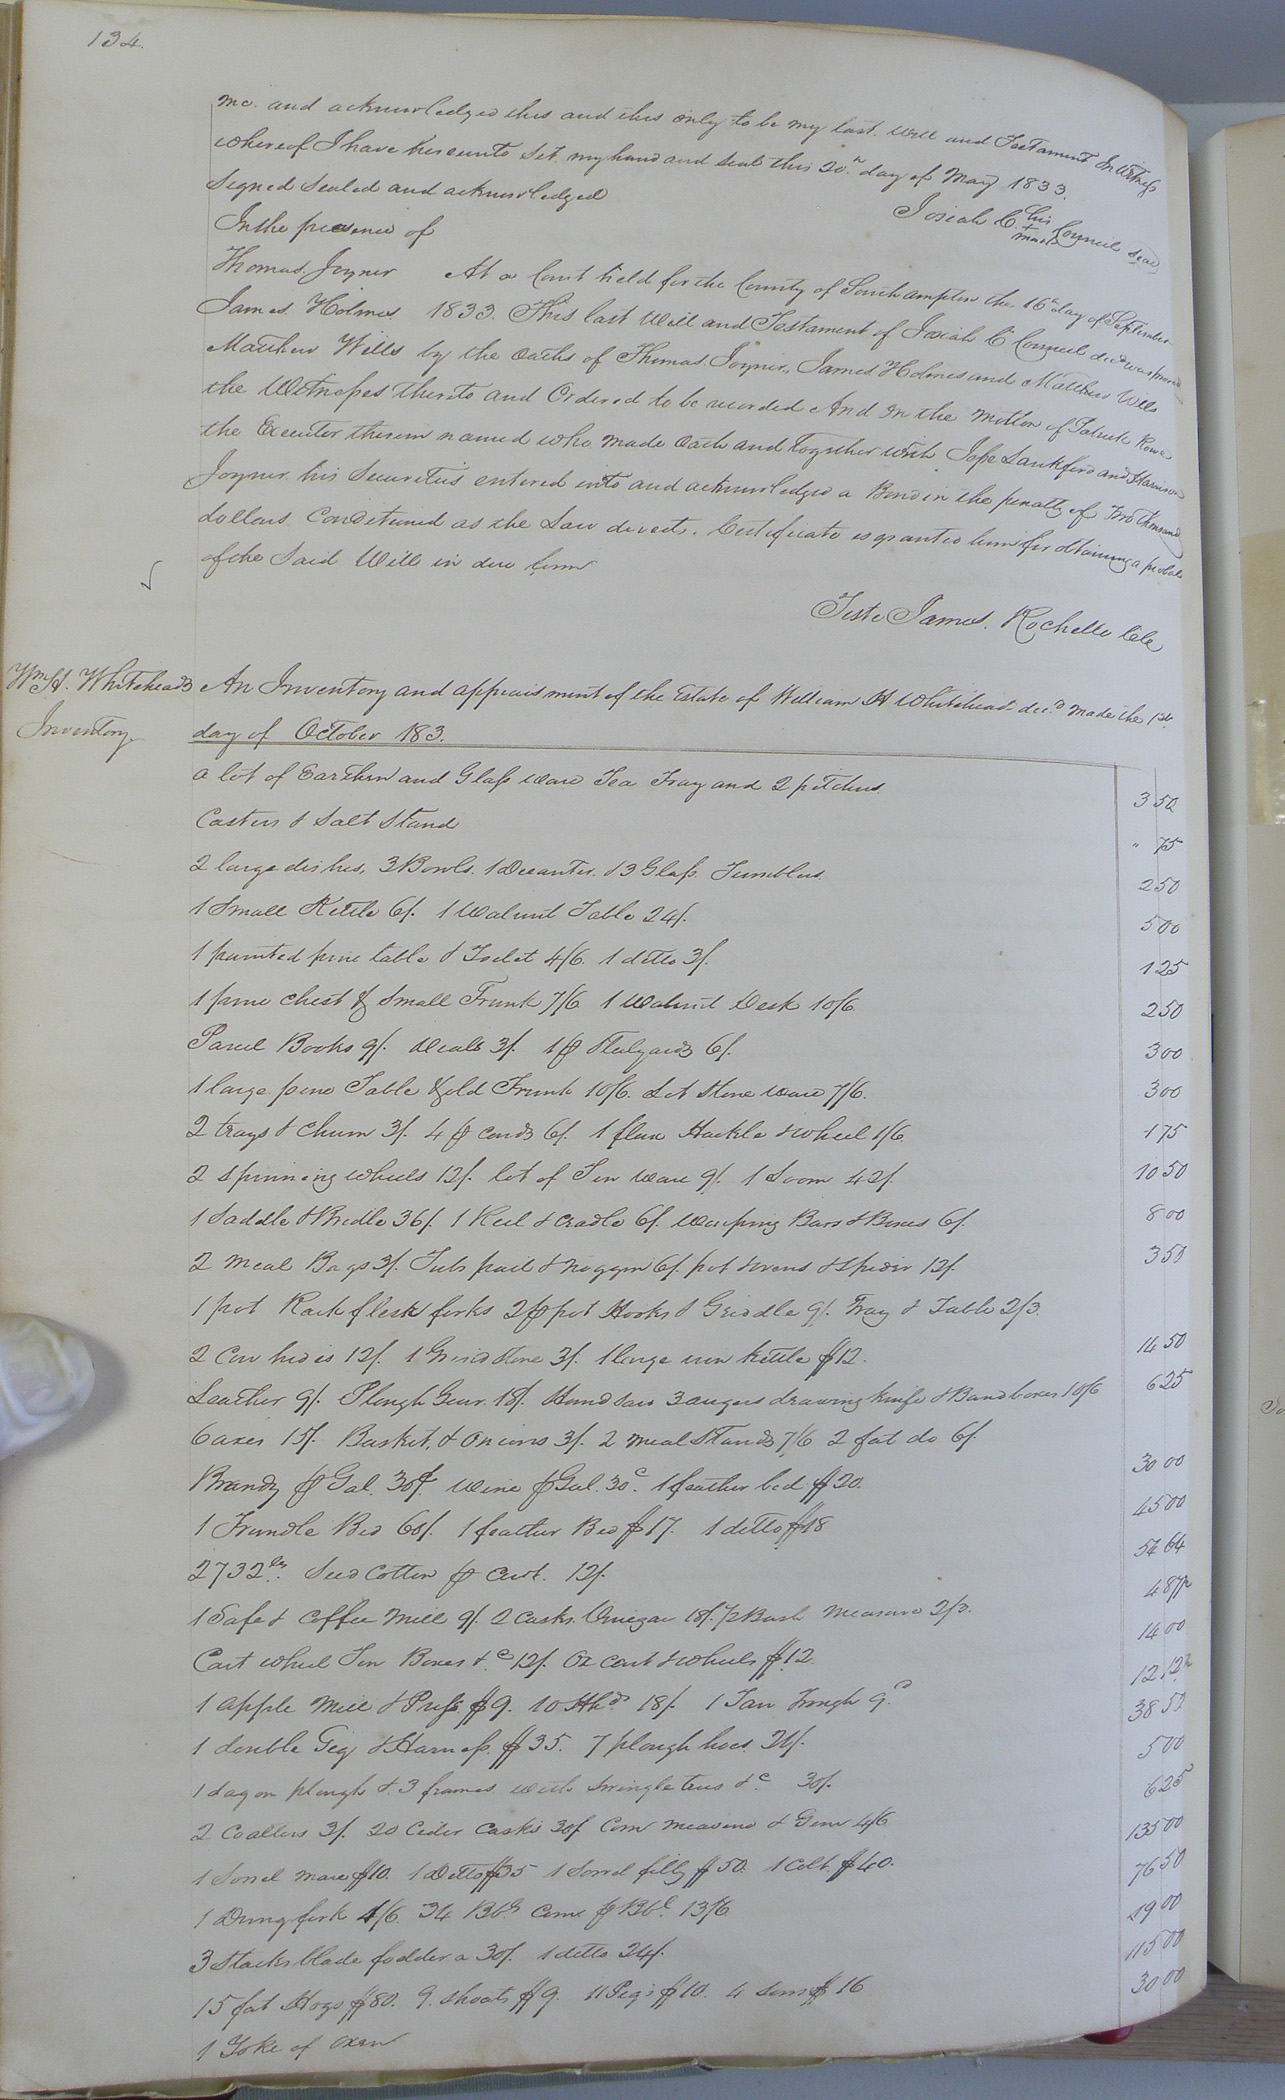 134.
me. and acknowledged this and this only to be my last will and Testament In Witness
whereof I have hereunto Set my hand and seal this 20th day of May 1833.
Signed Sealed and acknowledged
Josiah C. his + mark Council seal
In the presence of
Thomas Joyner At a Court held for the County of Southampton the 16th day of September
James Holmes 1833. This last Will and Testament of Josiah C Council decd was proved
Matthew Wills by the Oaths of Thomas Joyner, James Holmes and Matthew Wills
the Witnesses thereto and Ordered to be recorded And On the motion of Patrick Rowe
the Executor therein named who made Oath and together with Jesse Lankford and Harrison
Joyner his Securities entered into and acknowledged a Bond in the penalty of Two thousand
dollars Conditioned as the Law directs. Certificate is granted him for obtaining a probate
of the Said Will in due form
Teste James Rochelle Clk
Wm H. Whitehead's
Inventory
An Inventory and appraisment of the Estate of William H Whitehead decd made the 1st
day of October 183.
a lot of Earthen and Glass ware Tea Tray and 2 pitchers 3 50
Casters & Salt Stand " 75
2 large dishes, 3 Bowls. 1 Decanter. & 3 Glass Tumblers 2 50
1 Small Kettle 6/. 1 Walnut Table 24/. 5 00
1 painted pine table & Toilet 4/6. 1 ditto 3/. 1 25
1 pine chest & Small Trunk 7/6 1 Walnut Desk 10/6 2 50
Parcel Books 9/. 3/. 1 pr Stilyards 6/. 3 00
1 large pine Table & old Trunk 10/6. Lot Stone ware 7/6. 3 00
2 trays & churn 3/. 4 pr cards 6/. 1 flax Hackle & wheel 1/6 1 75
2 spinning wheels 12/. lot of Tin ware 9/. 1 Loom 42/. 10 50
1 Saddle & Bridle 36/. 1 Reel & cradle 6/. Warping Bars & Boxes 6/. 8 00
2 meal Bags 3/. Tubs pail & noggin 6/. pot ovens & Spider 12/. 3 50
1 pot Rack flesh forks 2 pr pot Hooks & Griddle 9/. Tray & Table 2/3.
2 Cow hides 12/. 1 Grind Stone 3/. 1 large iron kettle $12. 14 50
Leather 9/. Plough Gear 18/. Hand saw 3 augers drawing knife & Bandboxes 10/6 6 25
6 axes 15/. Basket, & Onions 3/. 2 meal Stands 7/6 2 fat do 6/.
Brandy pr Gal. 30/. Wine pr Gal. 30c. 1 feather bed $20. 30 00
1 Trundle Bed 60/. 1 feather Bed $17. 1 ditto $18 45 00
2732 lbs. Seed Cotton pr Cwt. 12/. 54 64
1 Safe & Coffee Mill 9/. 2 Casks Vinegar 18/. 1/2 Bush measure 2/3. 4 87 1/2
Cart wheel Tin Boxes &c 12/. Ox cart & wheels $12. 14 00
1 apple Mill & Press $9. 10 Hhds 18/. 1 Tan Trough 9d 12 12 1/2
1 double Gig & Harness $35. 7 plough hoes 21/. 38 50
1 dagon plough & 3 frames with Swingletrees &c 30/. 5 00
2 Coallers 3/. 20 Cider Casks 30/ Corn measure & 4/6 6 25
1 Sorrel mare $10. 1 Ditto $35 1 Sorrel filly $50. 1 Colt $40. 135 00
1 Dung fork 4/6. 34 Bbls Corn pr Bbl. 13/6 76 50
3 Stacks blade fodder a 30/. 1 ditto 24/. 19 00
15 fat Hogs $80. 9. Shoats $9. 11 Pigs $10. 4 Sows $16 115 00
1 Yoke of Oxen 30 00